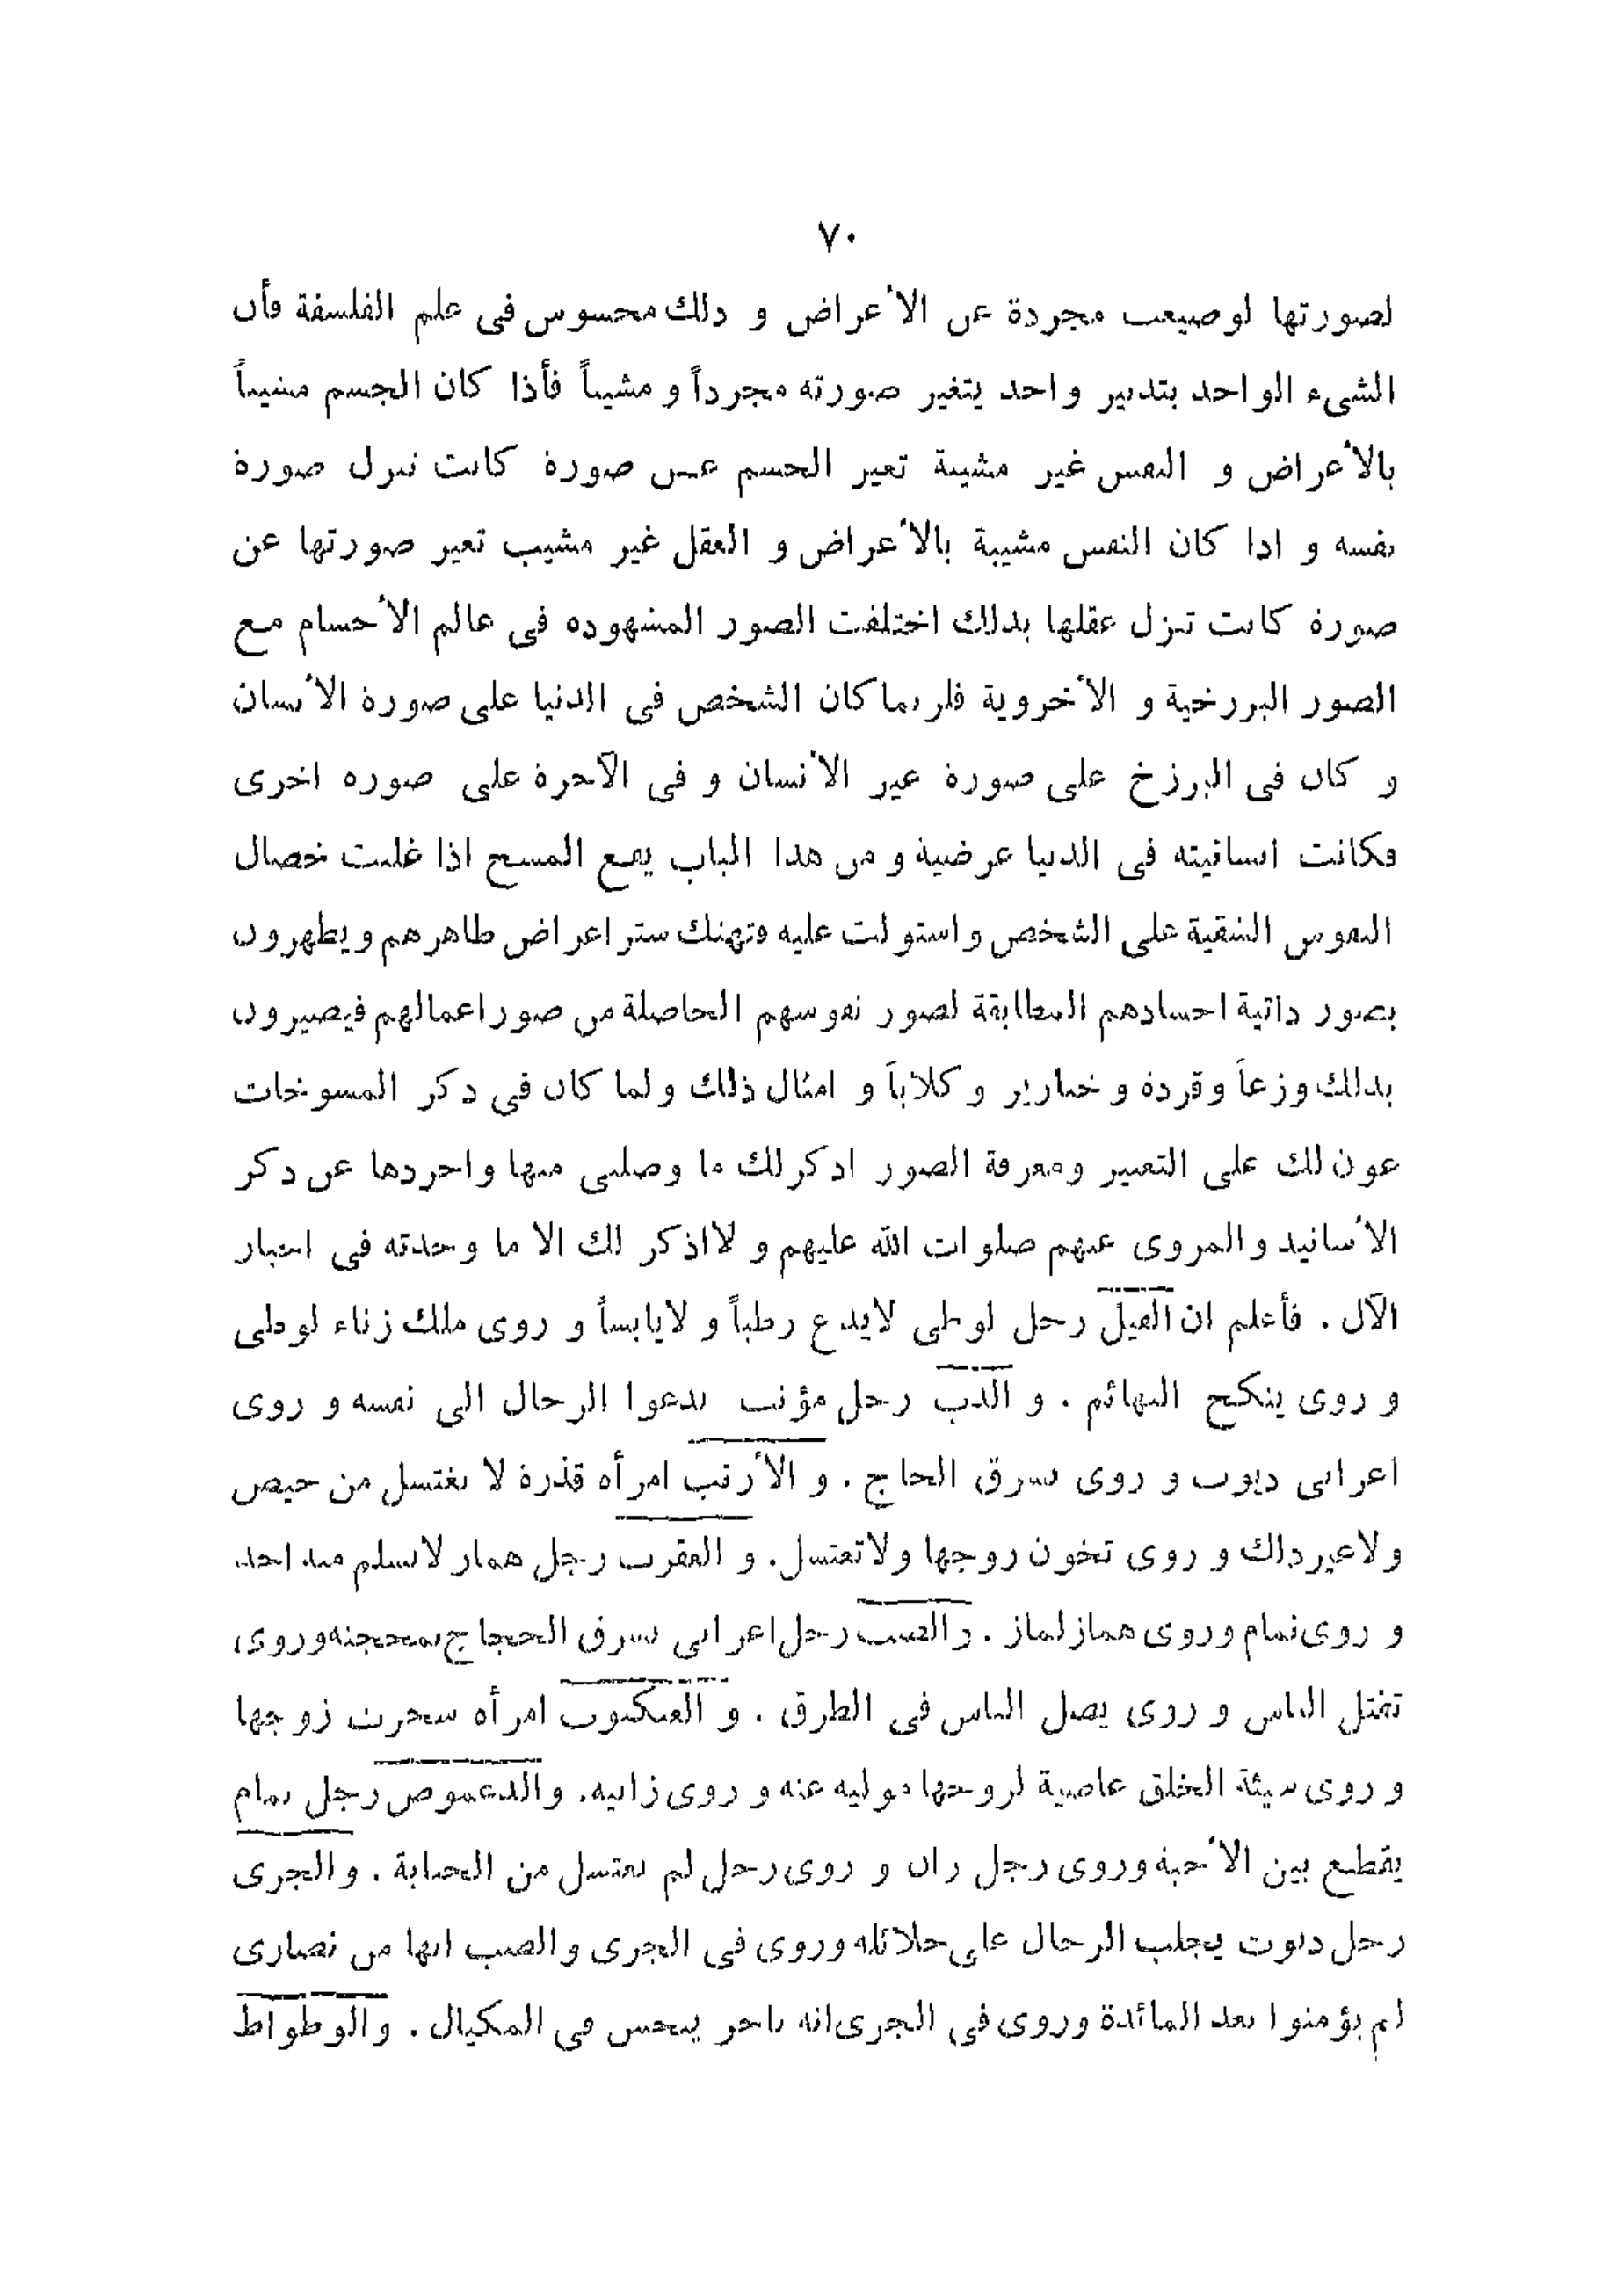 ٧٠
لصورتها لوصيغت مجردة عن الأعراض و ذلك محسوس فى علم الفلسفة فأن
الشىء الواحد بتدبير واحد يتغير صورته مجرداً و مشيباً فأذا كان الجسم مشيباً
بالأعراض و النفس غير مشيبة تغير الجسم عن صورة كانت تنزل صورة
نفسه و اذا كان النفس مشيبة بالأعراض و العقل غير مشيب تغير صورتها عن
صورة كانت تنزل عقلها بذلك اختلفت الصور المشهوده فى عالم الأجسام مع
الصور البرزخية و الأخروية فلربما كان الشخص فى الدنيا على صورة الأنسان
و كان فى البرزخ على صورة غير الأنسان و فى الآخرة على صوره اخرى
فكانت انسانيته فى الدنيا عرضية و من هذا الباب يقع المسخ اذا غلبت خصال
النفوس الشقية على الشخص واستولت عليه فتهتك ستر اعراض ظاهرهم ويظهرون
بصور ذاتية اجسادهم المطابقة لصور نفوسهم الحاصلة من صور اعمالهم فيصيرون
بذلك وزغاً وقردة و خنازير و كلاباً و امثال ذلك ولما كان فى ذكر المسوخات
عون لك على التعبير ومعرفة الصور اذكر لك ما وصلنى منها واجردها عن ذكر
الأسانيد والمروى عنهم صلوات الله عليهم و لااذكر لك الا ما وجدته فى اخبار
الآل . فأعلم ان الفيل رجل لوطى لايدع رطباً و لايابساً و روى ملك زناء لوطى
و روى ينكح البهائم . و الدب رجل مؤنث يدعوا الرجال الى نفسه و روى
اعرابى ديوث و روى يسرق الحاج . و الأرنب امرأه قذرة لا تغتسل من حيض
ولاغير ذلك و روى تخون زوجها ولاتغتسل . و العقرب رجل همار لايسلم منه احد
و روى نمام وروى هماز لماز . والضب رجل اعرابى يسرق الحجاج بمحجنه وروى
تفتل الناس و روى يضل الناس فى الطرق . و العنكبوت امرأه سحرت زوجها
و روى سيئة الخلق عاصية لزوجها موليه عنه و روى زانيه . والدعموص رجل نمام
يقطع بين الأحبة وروى رجل زان و روى رجل لم يغتسل من الجنابة . والجرى
رجل ديوث يجلب الرجال على حلائله وروى فى الجرى والضب انها من نصارى
لم يؤمنوا بعد المائدة وروى فى الجرى انه تاجر يبخس فى المكيال . والوطواط